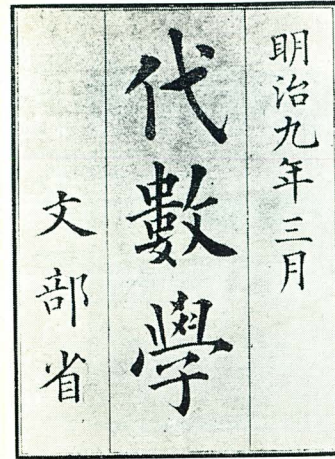 明治九年三月
代數學
文部省